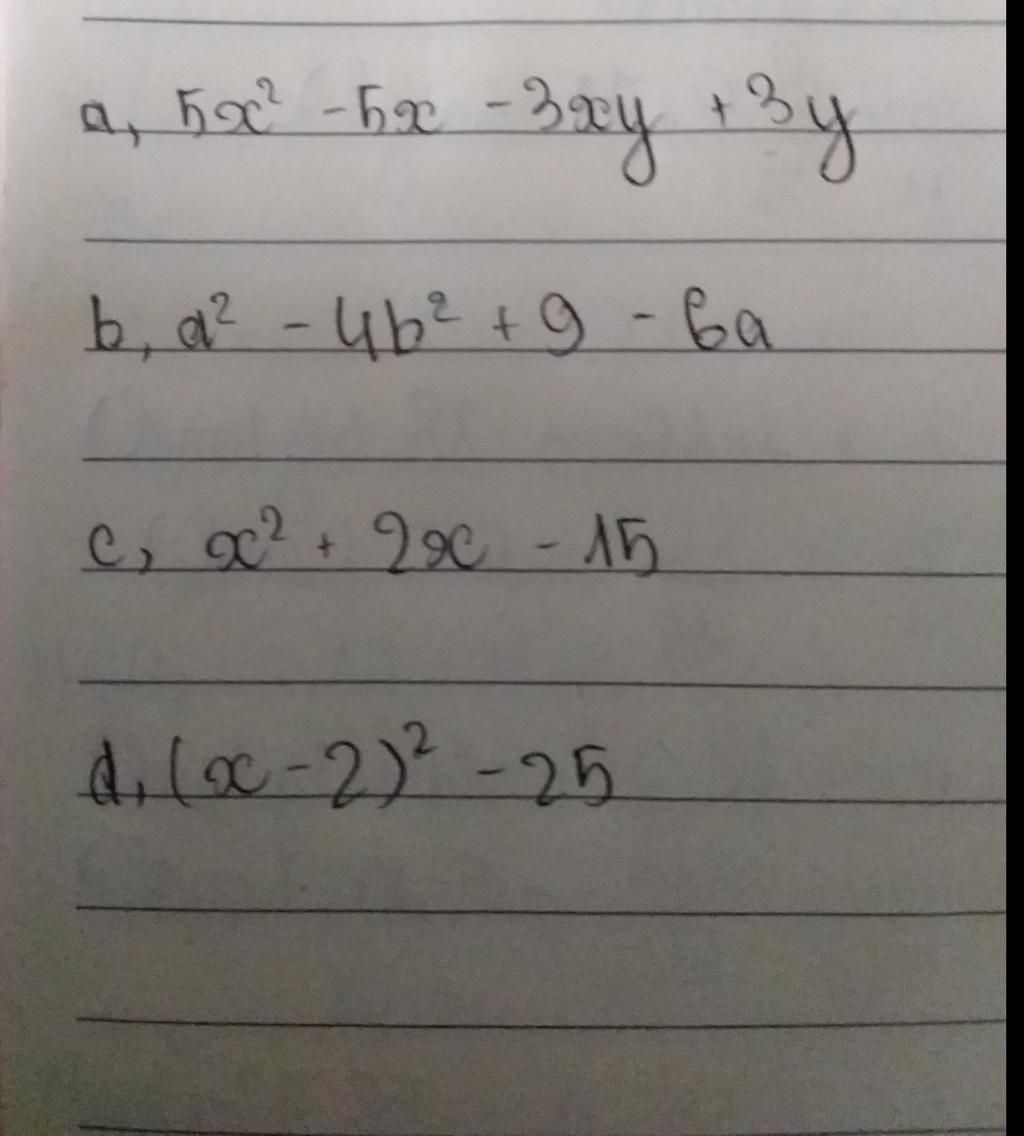 a, 5x² - 5x - 3xy + 3y
b, a² - 4b² + 9 - 6a
c, x² + 2x - 15
d, (x - 2)² - 25